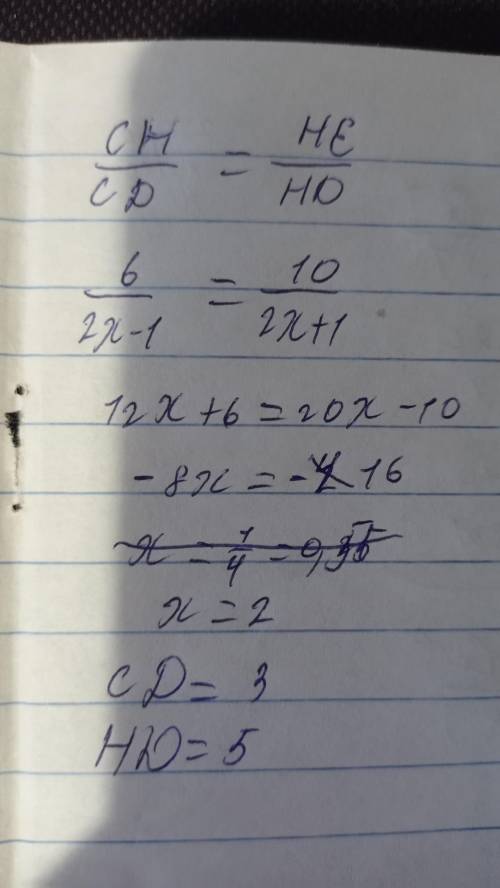 CH/CD = HE/HD
6/2x-1 = 10/2x+1
12x+6=20x-10
-8x=-16
x=2
CD=3
HD=5